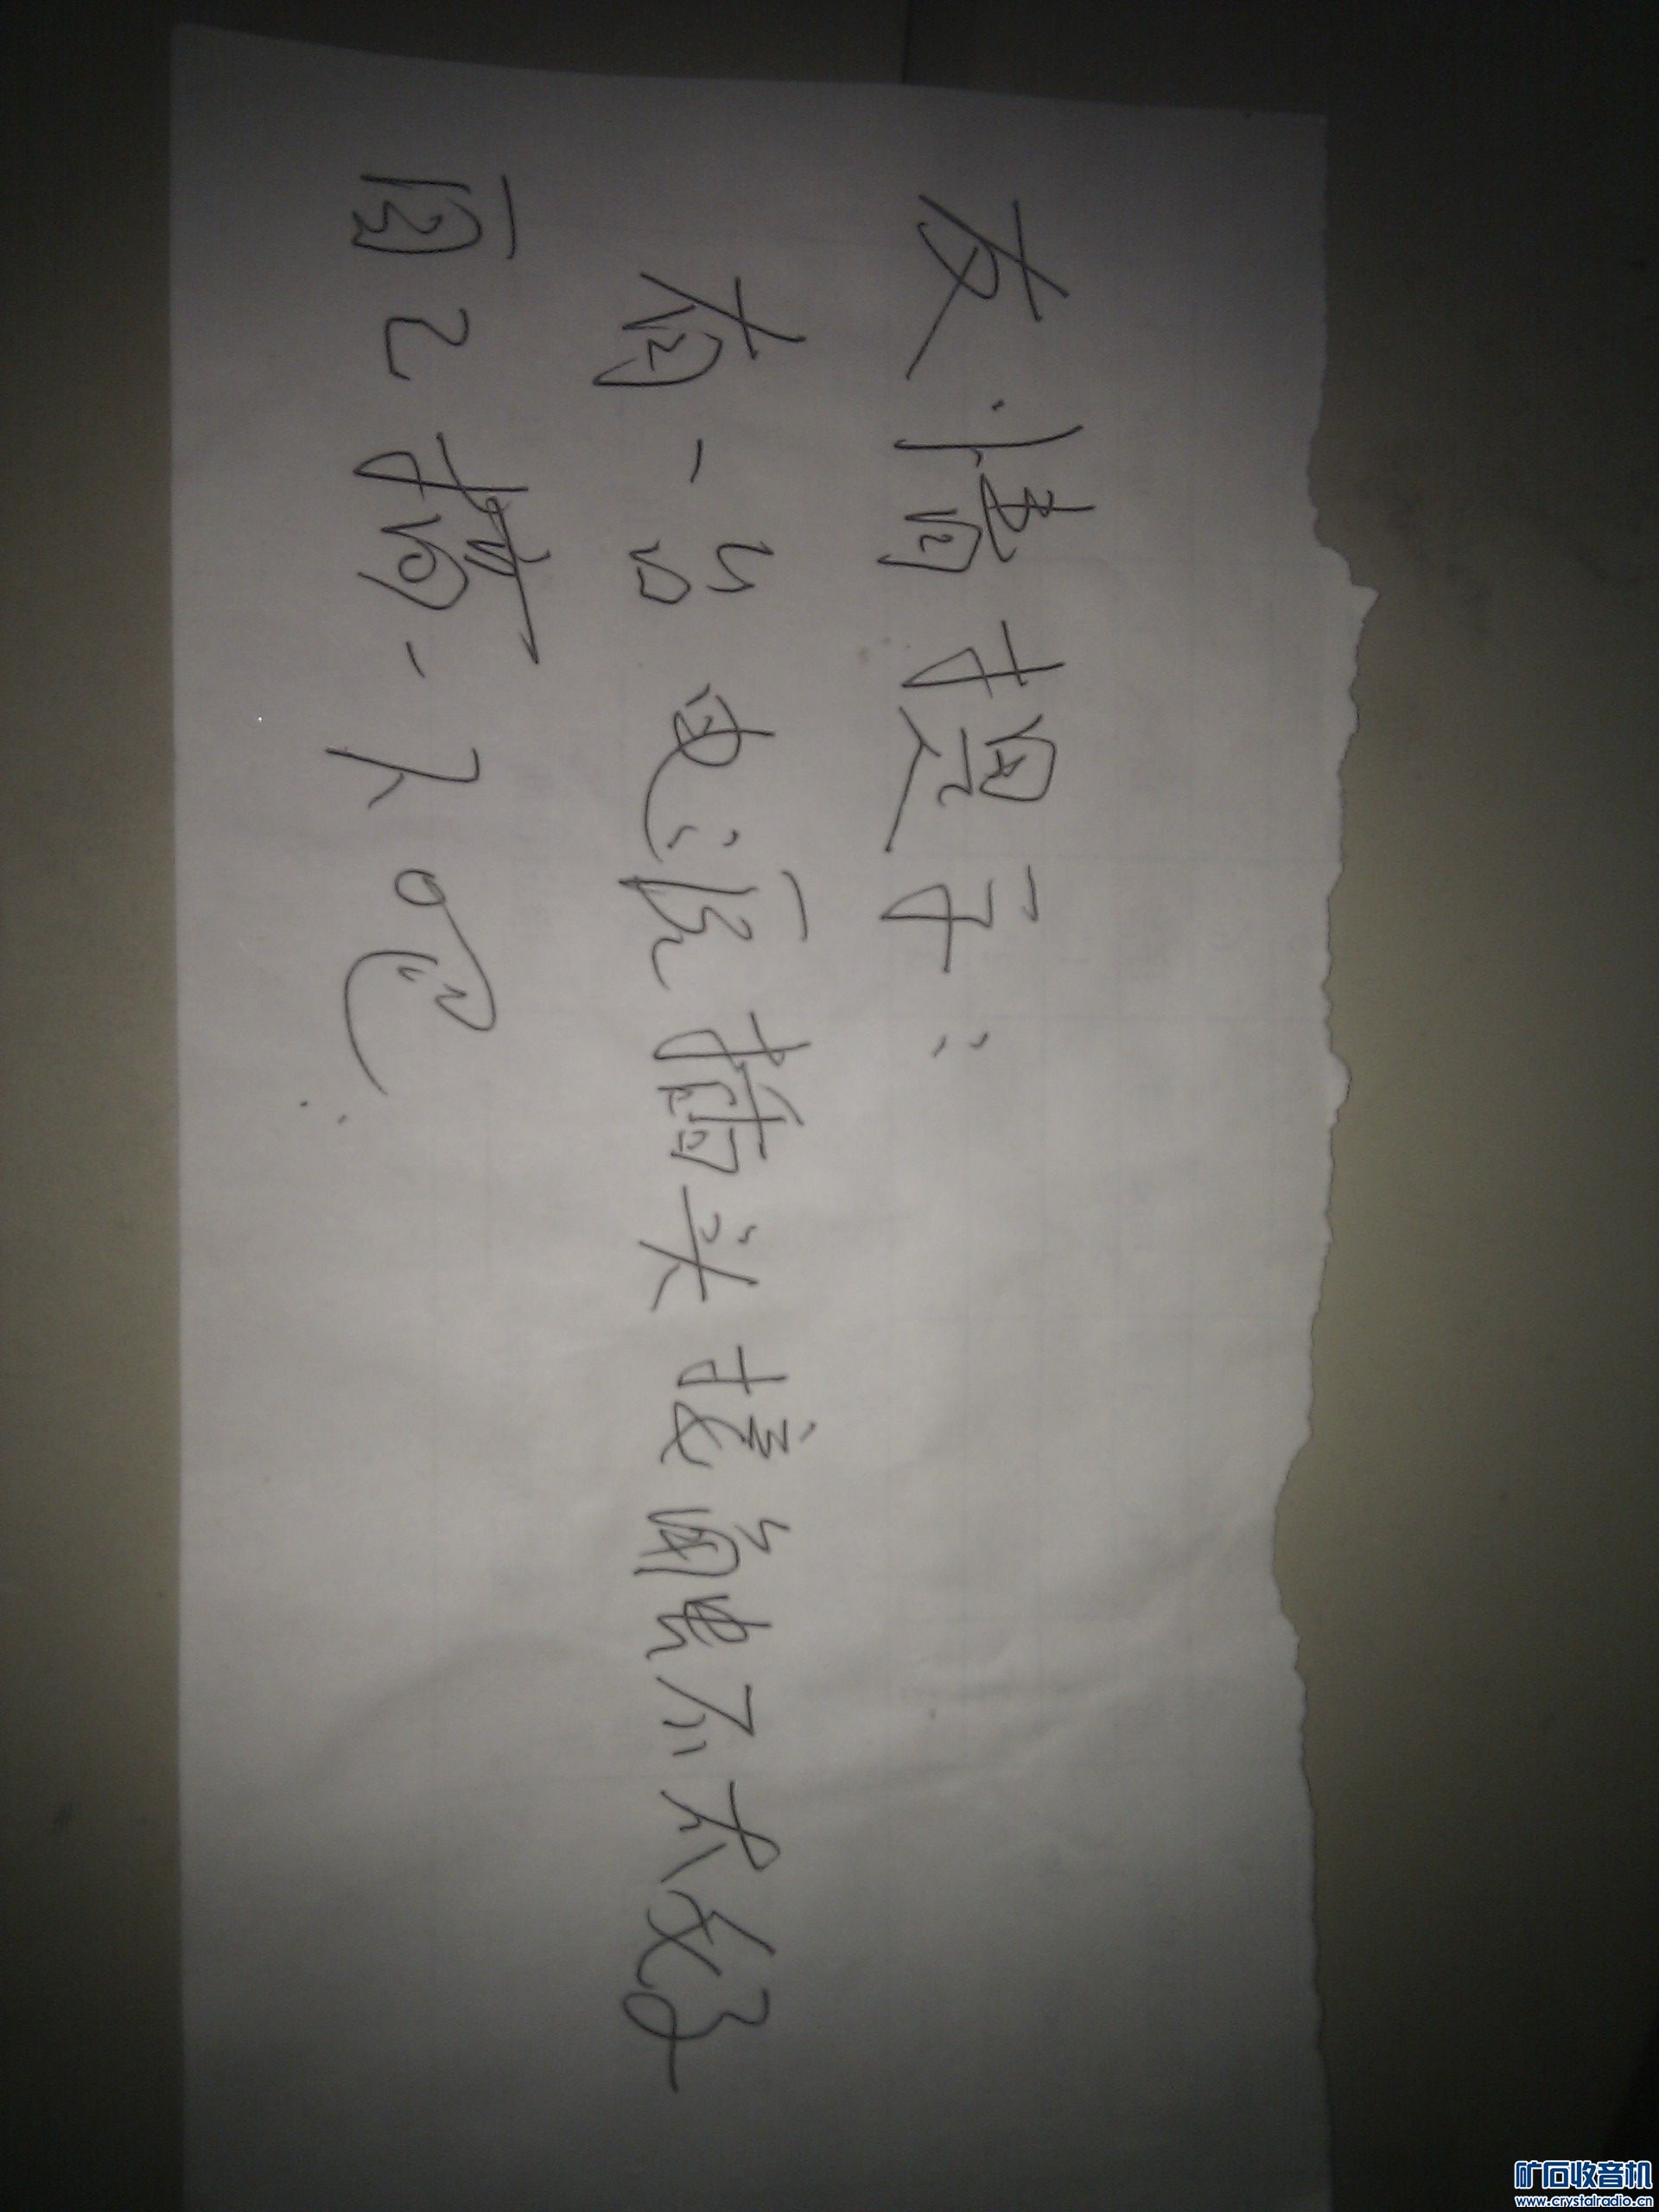 友情提示：
有一台电源插头接触不太好
自己搞一下吧：
矿石收音机
www.crystalradio.cn